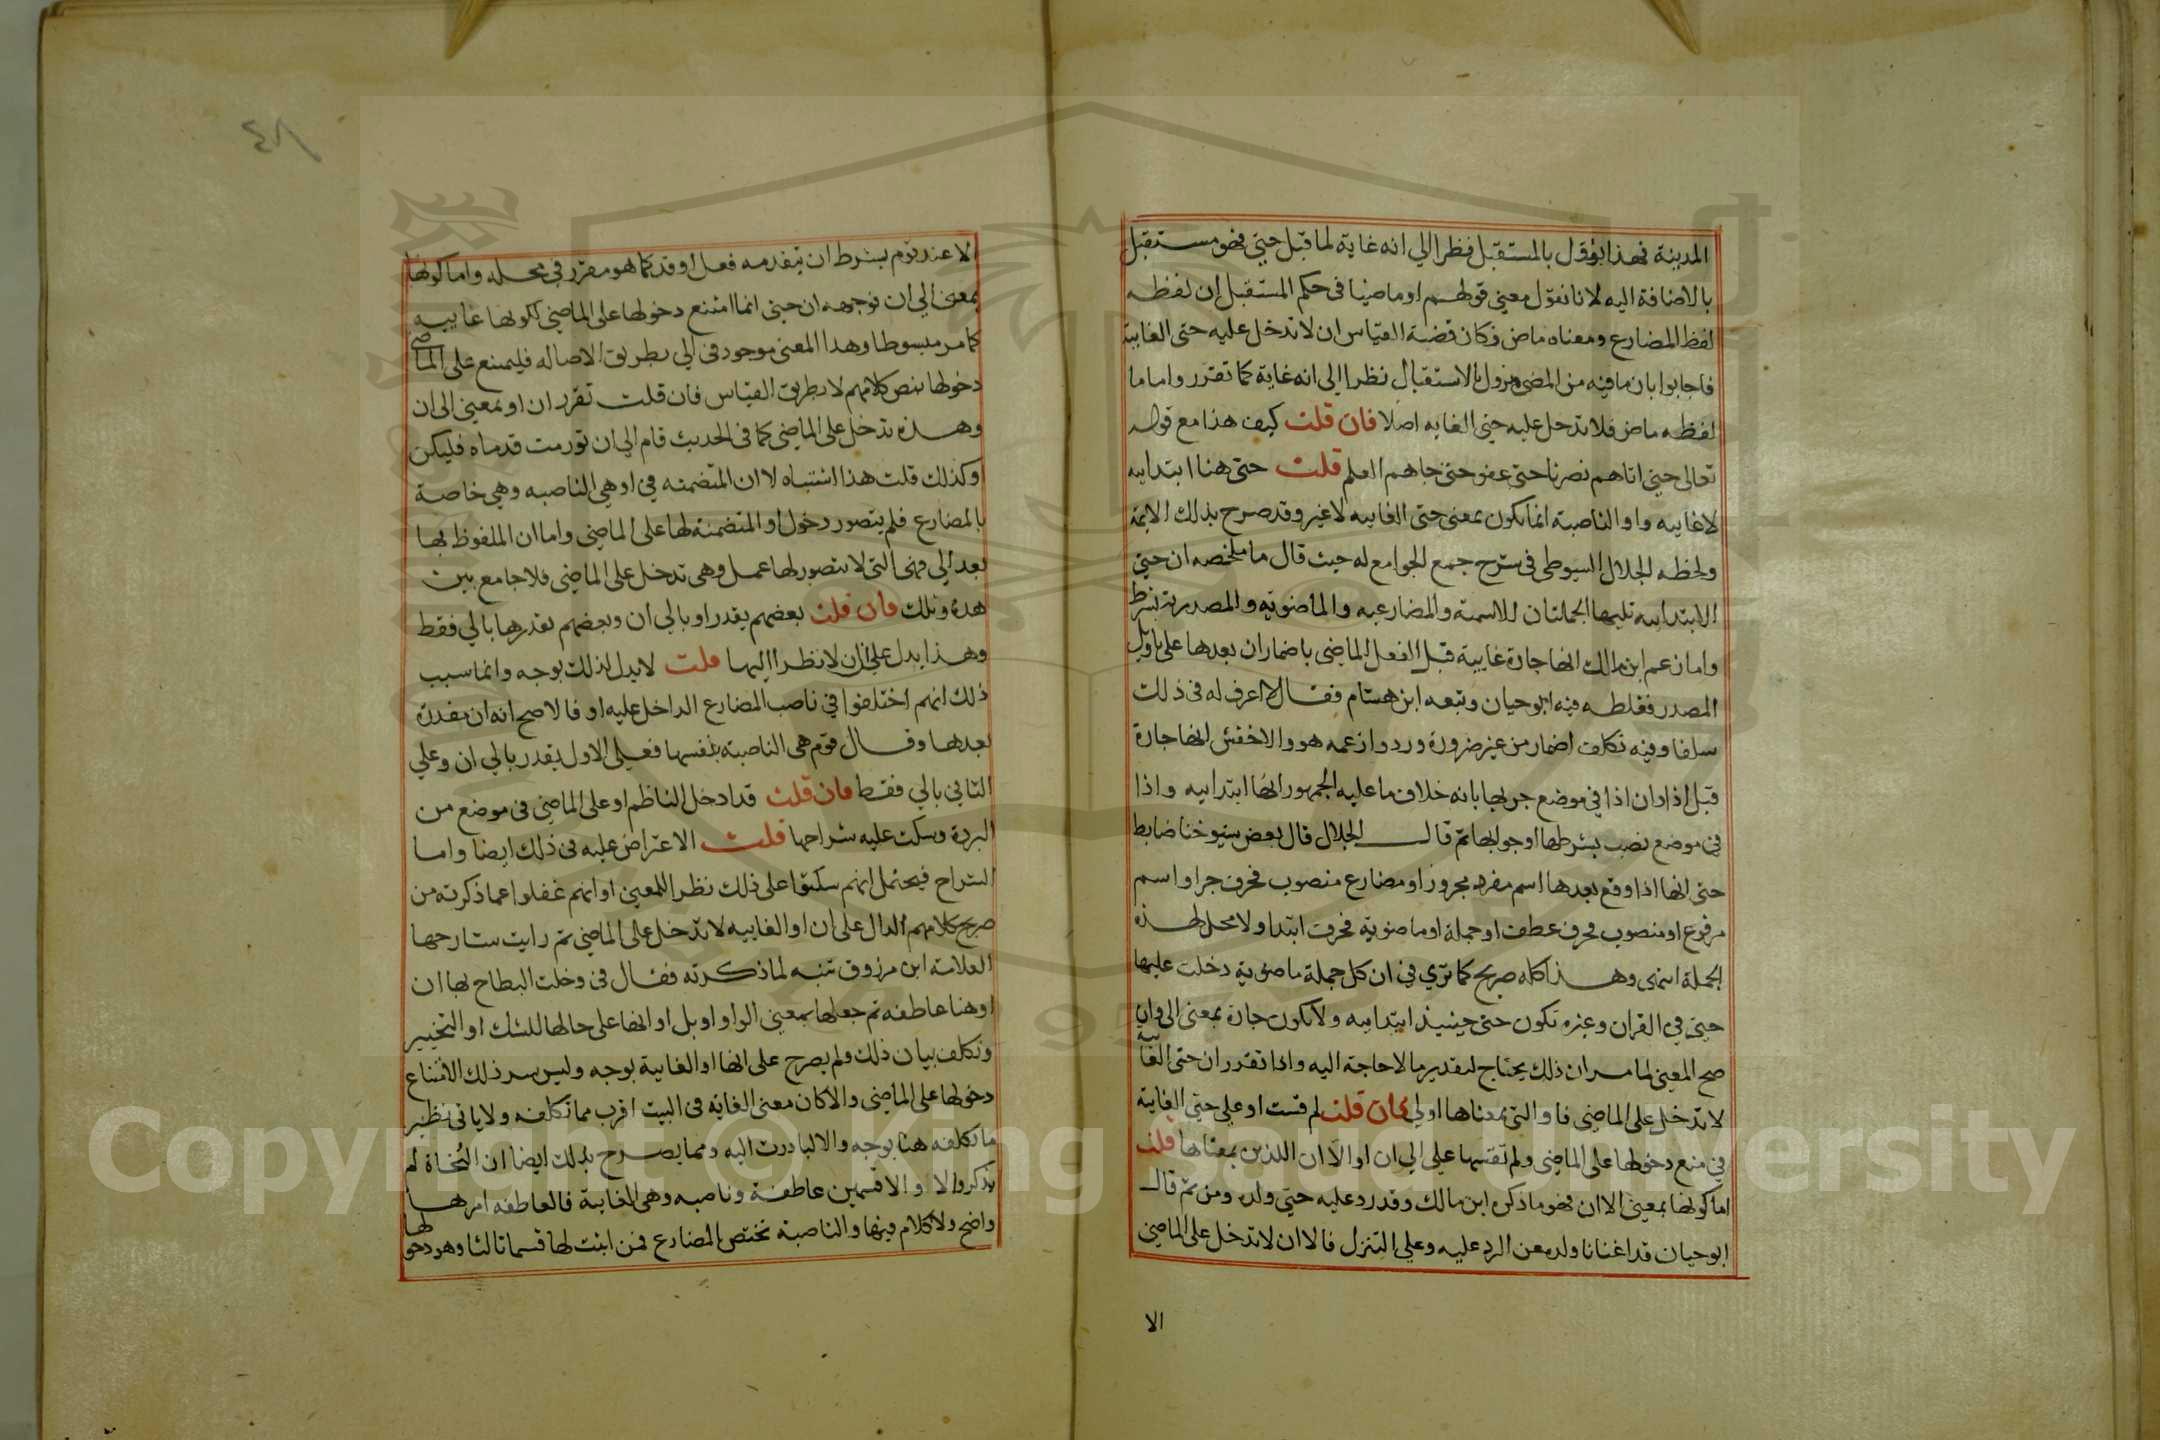 المدينة فهذا يؤول بالمستقبل فنظرا الي انه غاية لما قبل حتي فهو مستقبل
بالاضافة اليه لانا نقول معني قولهم او ماضيا في حكم المستقبل ان لفظه
لفظ المضارع ومعناه ماض فكان قضية القياس ان لا تدخل عليه حتي الغاية
فاجابوا بان ما فيه من المضي مزول بالاستقبال نظرا الي انه غاية كما تقرر واما ما
لفظه ماض فلا تدخل عليه حتي الغايه اصلا فان قلت كيف هذا مع قوله
تعالي حتي اتاهم نصرنا حتي عفو حتي جاهم العلم قلت حتي هنا ابتدايه
لا غاييه واو الناصبة انما تكون بمعني حتي الغاييه لا غير وقد صرح بذلك الايمة
ولحظه الجلال السيوطي في شرح جمع الجوامع له حيث قال ما ملخصه ان حتي
الابتداييه تليها الجملتان الاسمية والمضارعيه والماضويه والمصدرية بشرط
واما زعم ابن مالك انها جارة غايية قبل الفعل الماضي باضمار ان بعدها علي تاويل
المصدر فغلطه فيه ابو حيان وتبعه ابن هشام فقال لا اعرف له في ذلك
سلفا وفيه تكلف اضمار من غير ضرورة وردوا زعمه هو والاخفش انها جارة
قبل اذا وان اذا في موضع جر بها بانه خلاف ما عليه الجمهور انها ابتداييه واذا
في موضع نصب بشرطها او جوابها ثم قال الجلال قال بعض شيوخنا ضابط
حتي انها اذا وقع بعدها اسم مفرد مجرور او مضارع منصوب فحرف جر او اسم
مرفوع او منصوب فحرف عطف او جملة او ماضوية فحرف ابتدا ولا محل لهذه
الجملة انتهي وهذا كله صريح كما تري في ان كل جملة ماضوية دخلت عليها
حتي في القران وغيره تكون حتي حينيذ ابتداييه ولا تكون جارة بمعني الي وان
صح المعني لما مر ان ذلك يحتاج لتقدير ما لا حاجة اليه واذا تقرر ان حتي الغايية
لا تدخل علي الماضي فاو التي بمعناها اولي فان قلت لم قست او علي حتي الغاية
في منع دخولها علي الماضي ولم تقسها علي الي ان او الا ان اللذين بمعناها قلت
اما كونها بمعني الا ان فهو ما ذكره ابن مالك وقد رد عليه حتي ولده ومن ثم قال
ابو حيان قد اغنانا ولده عن الرد عليه وعلي التنزل فالا ان لا تدخل علي الماضي
الا
٤٨
الا عند قوم بشرط ان يتقدمه فعل او قد كما هو مقرر في محله واما كونها
بمعني الي ان فوجهه ان حتي انما امتنع دخولها علي الماضي لكونها غاييه
كما مر مبسوطا وهذا المعني موجود في الي بطريق الاصاله فليمتنع علي الماضي
دخولها بنص كلامهم لا بطريق القياس فان قلت تقرر ان او بمعني الي ان
وهذه تدخل علي الماضي كما في الحديث قام الي ان تورمت قدماه فليكن
او كذلك قلت هذا اشتباه لا ان المتضمنه في او هي الناصبه وهي خاصة
بالمضارع فلم يتصور دخول او المتضمنة لها علي الماضي واما ان الملفوظ بها
بعد الي فهي التي لا يتصور لها عمل وهي تدخل علي الماضي فلا جامع بين
هذه وتلك فان قلت بعضهم يقدر او بالي ان وبعضهم يقدرها بالي فقط
وهذا يدل علي ان لا نظر اليها قلت لا يدل لذلك بوجه وانما سبب
ذلك انهم اختلفوا في ناصب المضارع الداخل عليه او فالاصح انه ان مقدرة
بعدها وقال قوم هي الناصبة بنفسها فعلي الاول يقدر بالي ان وعلي
الثاني بالي فقط فان قلت قد ادخل الناظم او علي الماضي في موضع من
البردة وسكت عليه شراحها قلت الاعتراض عليه في ذلك ايضا واما
الشراح فيحتمل انهم سكتوا علي ذلك نظرا للمعني او انهم غفلوا عما ذكرته من
صريح كلامهم الدال علي ان او الغاييه لا تدخل علي الماضي ثم رايت شارحها
العلامة ابن مرزوق تنبه لما ذكرته فقال في وخلت البطاح بها ان
او هنا عاطفه ثم جعلها بمعني الواو او بل او انها علي حالها للشك او التخيير
وتكلف بيان ذلك ولم يصرح علي انها او الغايية بوجه وليس سر ذلك الا امتناع
دخولها علي الماضي والا كان معني الغايه في البيت اقرب مما تكلفه ولا ياتي نظير
ما تكلفه هنا بوجه والا لبادرت اليه ومما يصرح بذلك ايضا ان النحاة لم
يذكروا لاو الا قسمين عاطفة وناصبه وهي الغايية فالعاطفه امرها
واضح ولا كلام فيها والناصبة تختص المضارع فمن اثبت لها قسما ثالثا وهو دخولها